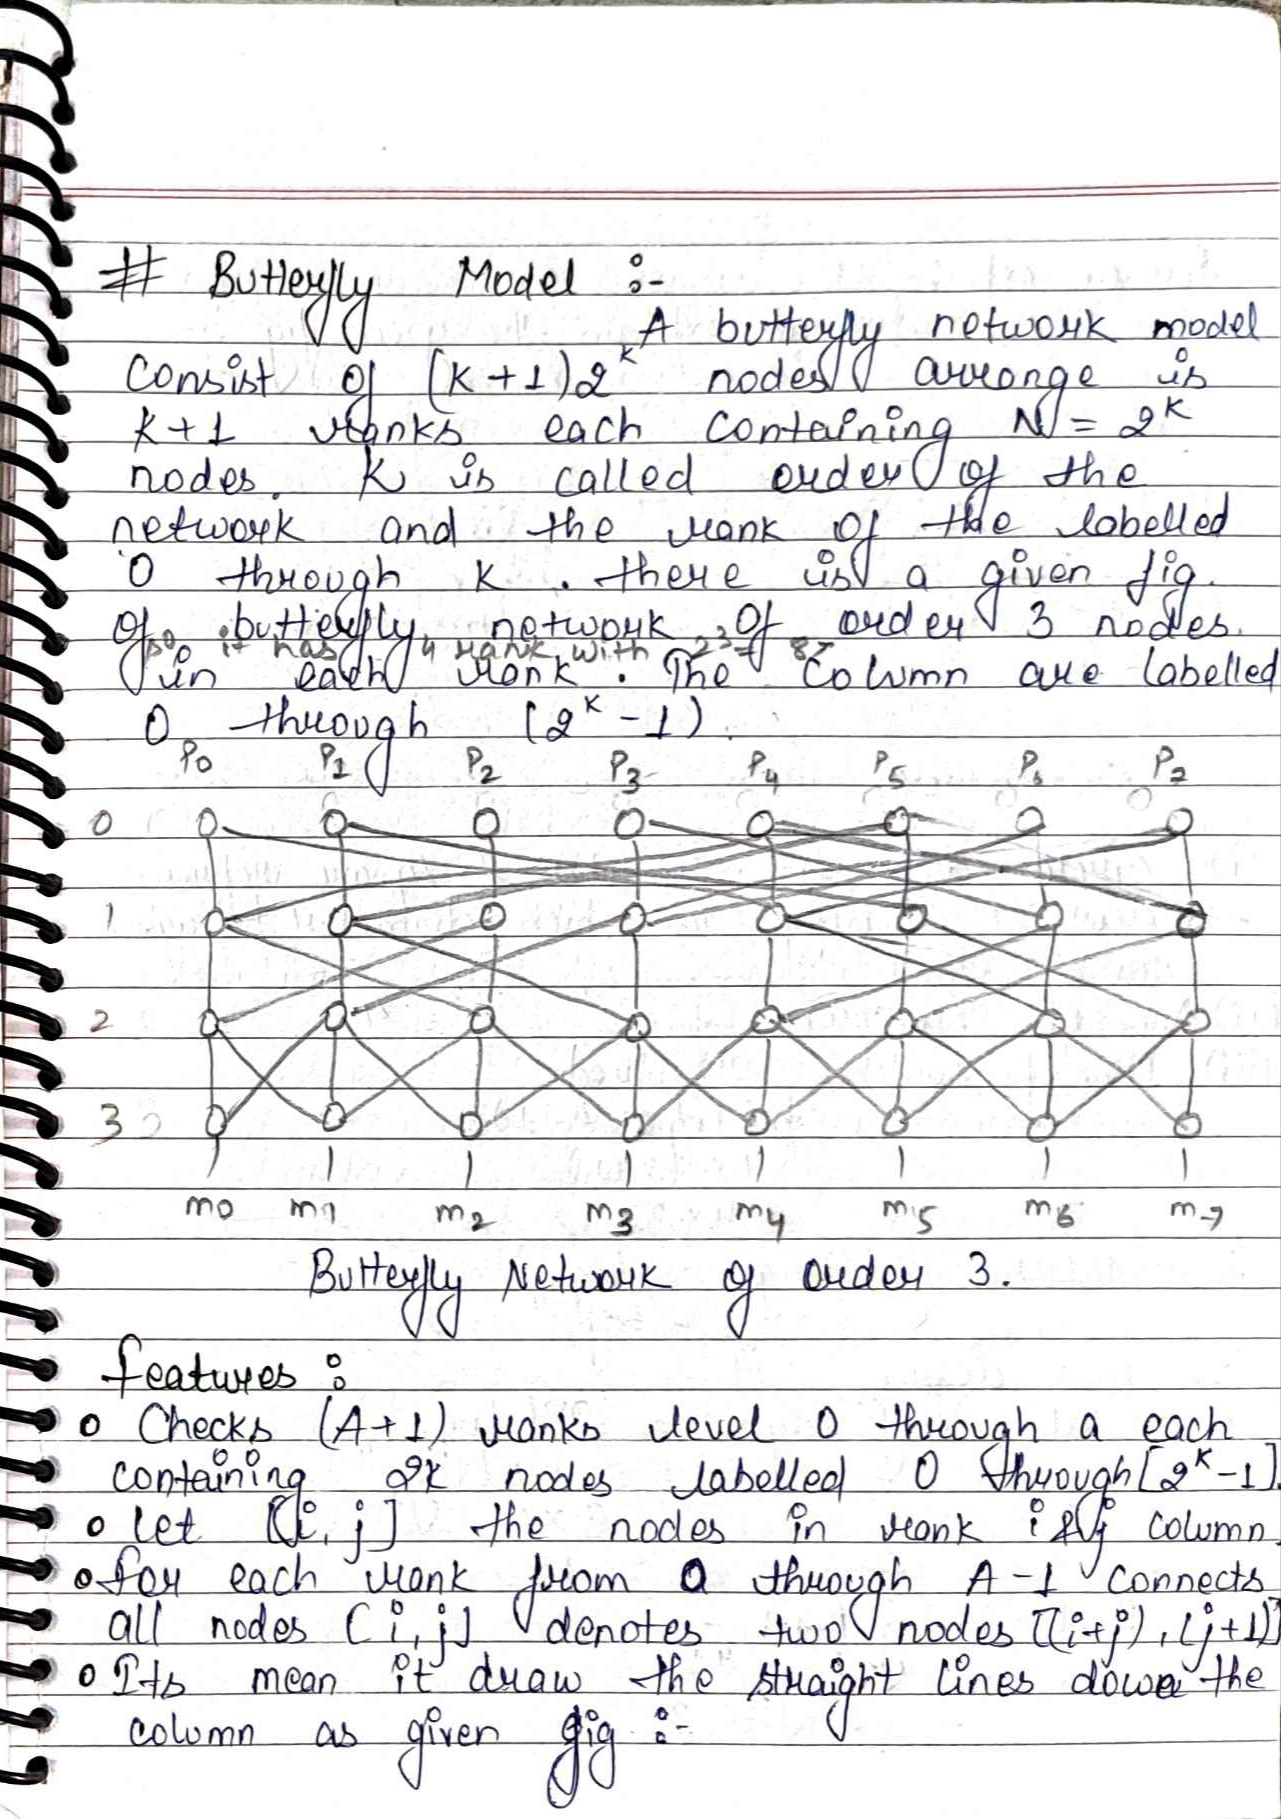 # Butterfly Model :-
A butterfly network model
consist of (K+1)2^K nodes arrange is
K+1 ranks each containing N = 2^K
nodes. K is called order of the
network and the rank of the labelled
0 through K. there is a given fig.
of butterfly network of order 3 nodes.
so it has 4 rank with 2^3 = 8
in each rank. The column are labelled
0 through (2^K - 1).
P0 P1 P2 P3 P4 P5 P6 P7
0
1
2
3
m0 m1 m2 m3 m4 m5 m6 m7
Butterfly Network of order 3.
features :
o Checks (A+1) ranks level 0 through a each
containing 2K nodes labelled 0 through [2^K-1].
o let [i, j] the nodes in rank i & j column.
o for each rank from 0 through A-1 connects
all nodes [i, j] denotes two nodes [(i+j), (j+1)]
o Its mean it draw the straight lines down the
column as given fig :-